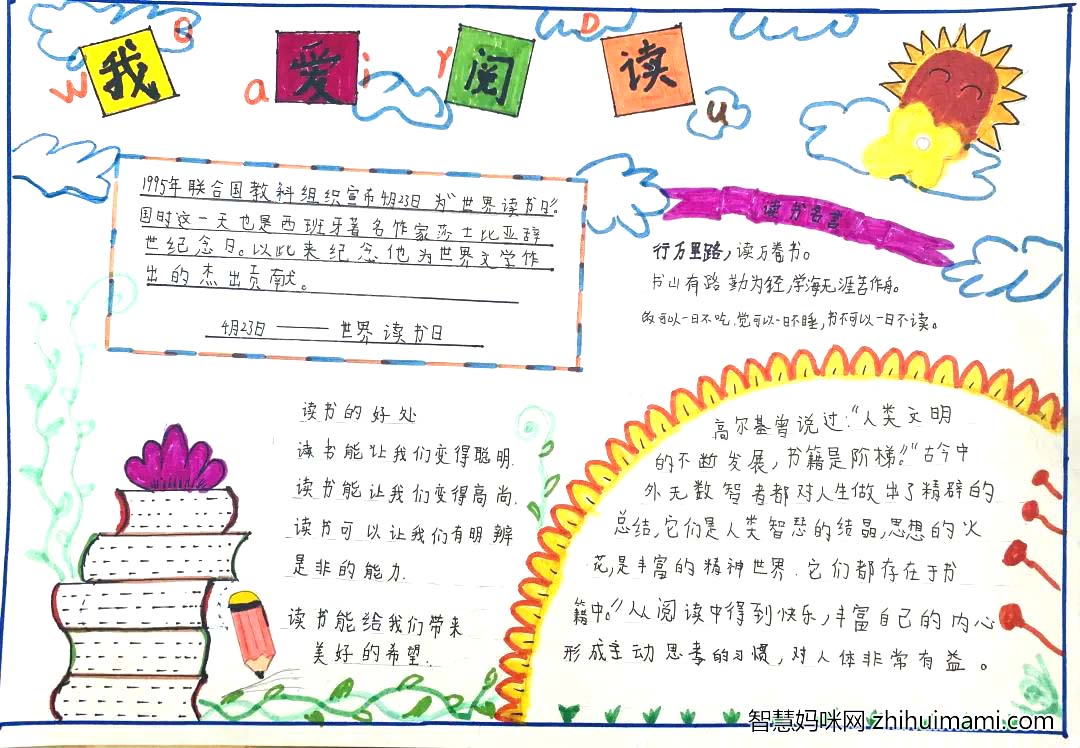 我 爱 阅 读
W a i y D u
1995年联合国教科组织宣布4月23日为“世界读书日”。
同时这一天也是西班牙著名作家莎士比亚辞
世纪念日。以此来纪念他为世界文学作
出的杰出贡献。
4月23日——世界读书日
读书名言
行万里路,读万卷书。
书山有路勤为径,学海无涯苦作舟。
饭可以一日不吃,觉可以一日不睡,书不可以一日不读。
读书的好处
读书能让我们变得聪明.
读书能让我们变得高尚.
读书可以让我们有明辨
是非的能力.
读书能给我们带来
美好的希望.
高尔基曾说过:“人类文明
的不断发展,书籍是阶梯。”“古今中
外无数智者都对人生做出了精辟的
总结,它们是人类智慧的结晶,思想的火
花,是丰富的精神世界.它们都存在于书
籍中。”从阅读中得到快乐,丰富自己的内心
形成主动思考的习惯,对人体非常有益。
智慧妈咪网 zhihuimami.com